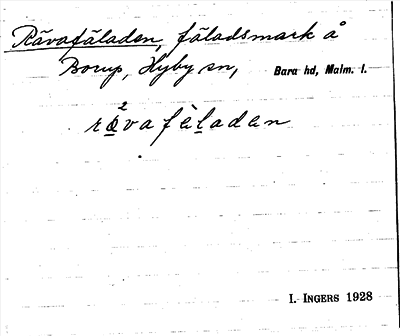 Rävafäladen, fäladsmark å
Borup, Hyby sn, Bara hd, Malm. l.
2
rævafèladen
I. INGERS 1928